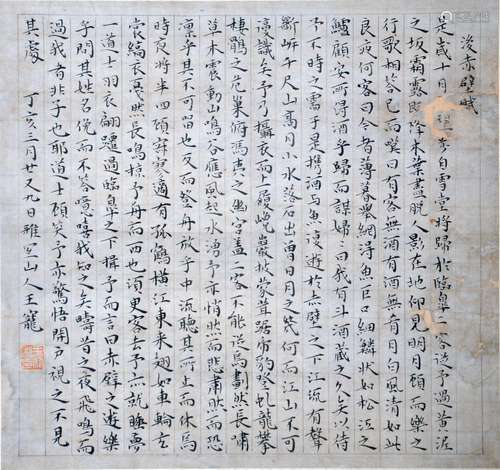 後赤壁賦
是歲十月望步自雪堂將歸於臨皋客從予過黃泥
之坂霜露既降木葉盡脫人影在地仰見明月顧而樂之
行歌相答已而嘆曰有客無酒有酒無肴月白風清如此
良夜何客曰今者薄暮舉網得魚巨口細鱗狀如松江之
鱸顧安所得酒乎歸而謀婦婦曰我有斗酒藏之久矣以待
子不時之需于是攜酒与魚復遊於赤壁之下江流有聲
斷岸千尺山高月小水落石出曾日月之幾何而江山不可
復識矣予乃攝衣而上履巉巖披蒙茸踞虎豹登虬龍攀
棲鶻之危巢俯馮夷之幽宮蓋二客不能從焉劃然長嘯
草木震動山鳴谷應風起水湧予亦悄然而悲肅然而恐
凜乎其不可留也反而登舟放乎中流聽其所止而休焉
時夜將半四顧寂寥適有孤鶴橫江東來翅如車輪玄
裳縞衣戛然長鳴掠予舟而西也須臾客去予亦就睡夢
一道士羽衣翩躚過臨皋之下揖予而言曰赤壁之遊樂
乎問其姓名俛而不答噫嘻我知之矣疇昔之夜飛鳴而
過我者非子也耶道士顧笑予亦驚悟開戶視之不見
其處 丁亥三月廿又九日雅宜山人王寵